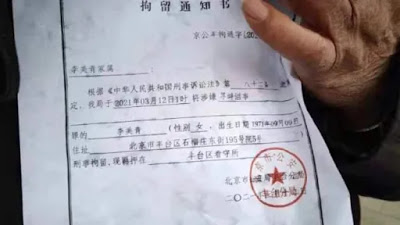 拘留通知书
京公丰拘通字[202
李美青家属:
根据《中华人民共和国刑事诉讼法》第 八十二条
定,我局于2021年03月12日1时将涉嫌 寻衅滋事
罪的 李美青 (性别 女 ,出生日期 1971年09月09日
住址 北京市丰台区石榴庄东街195号院3号
刑事拘留,现羁押在 丰台区看守所
北京市公安局丰台分局
二〇二一年